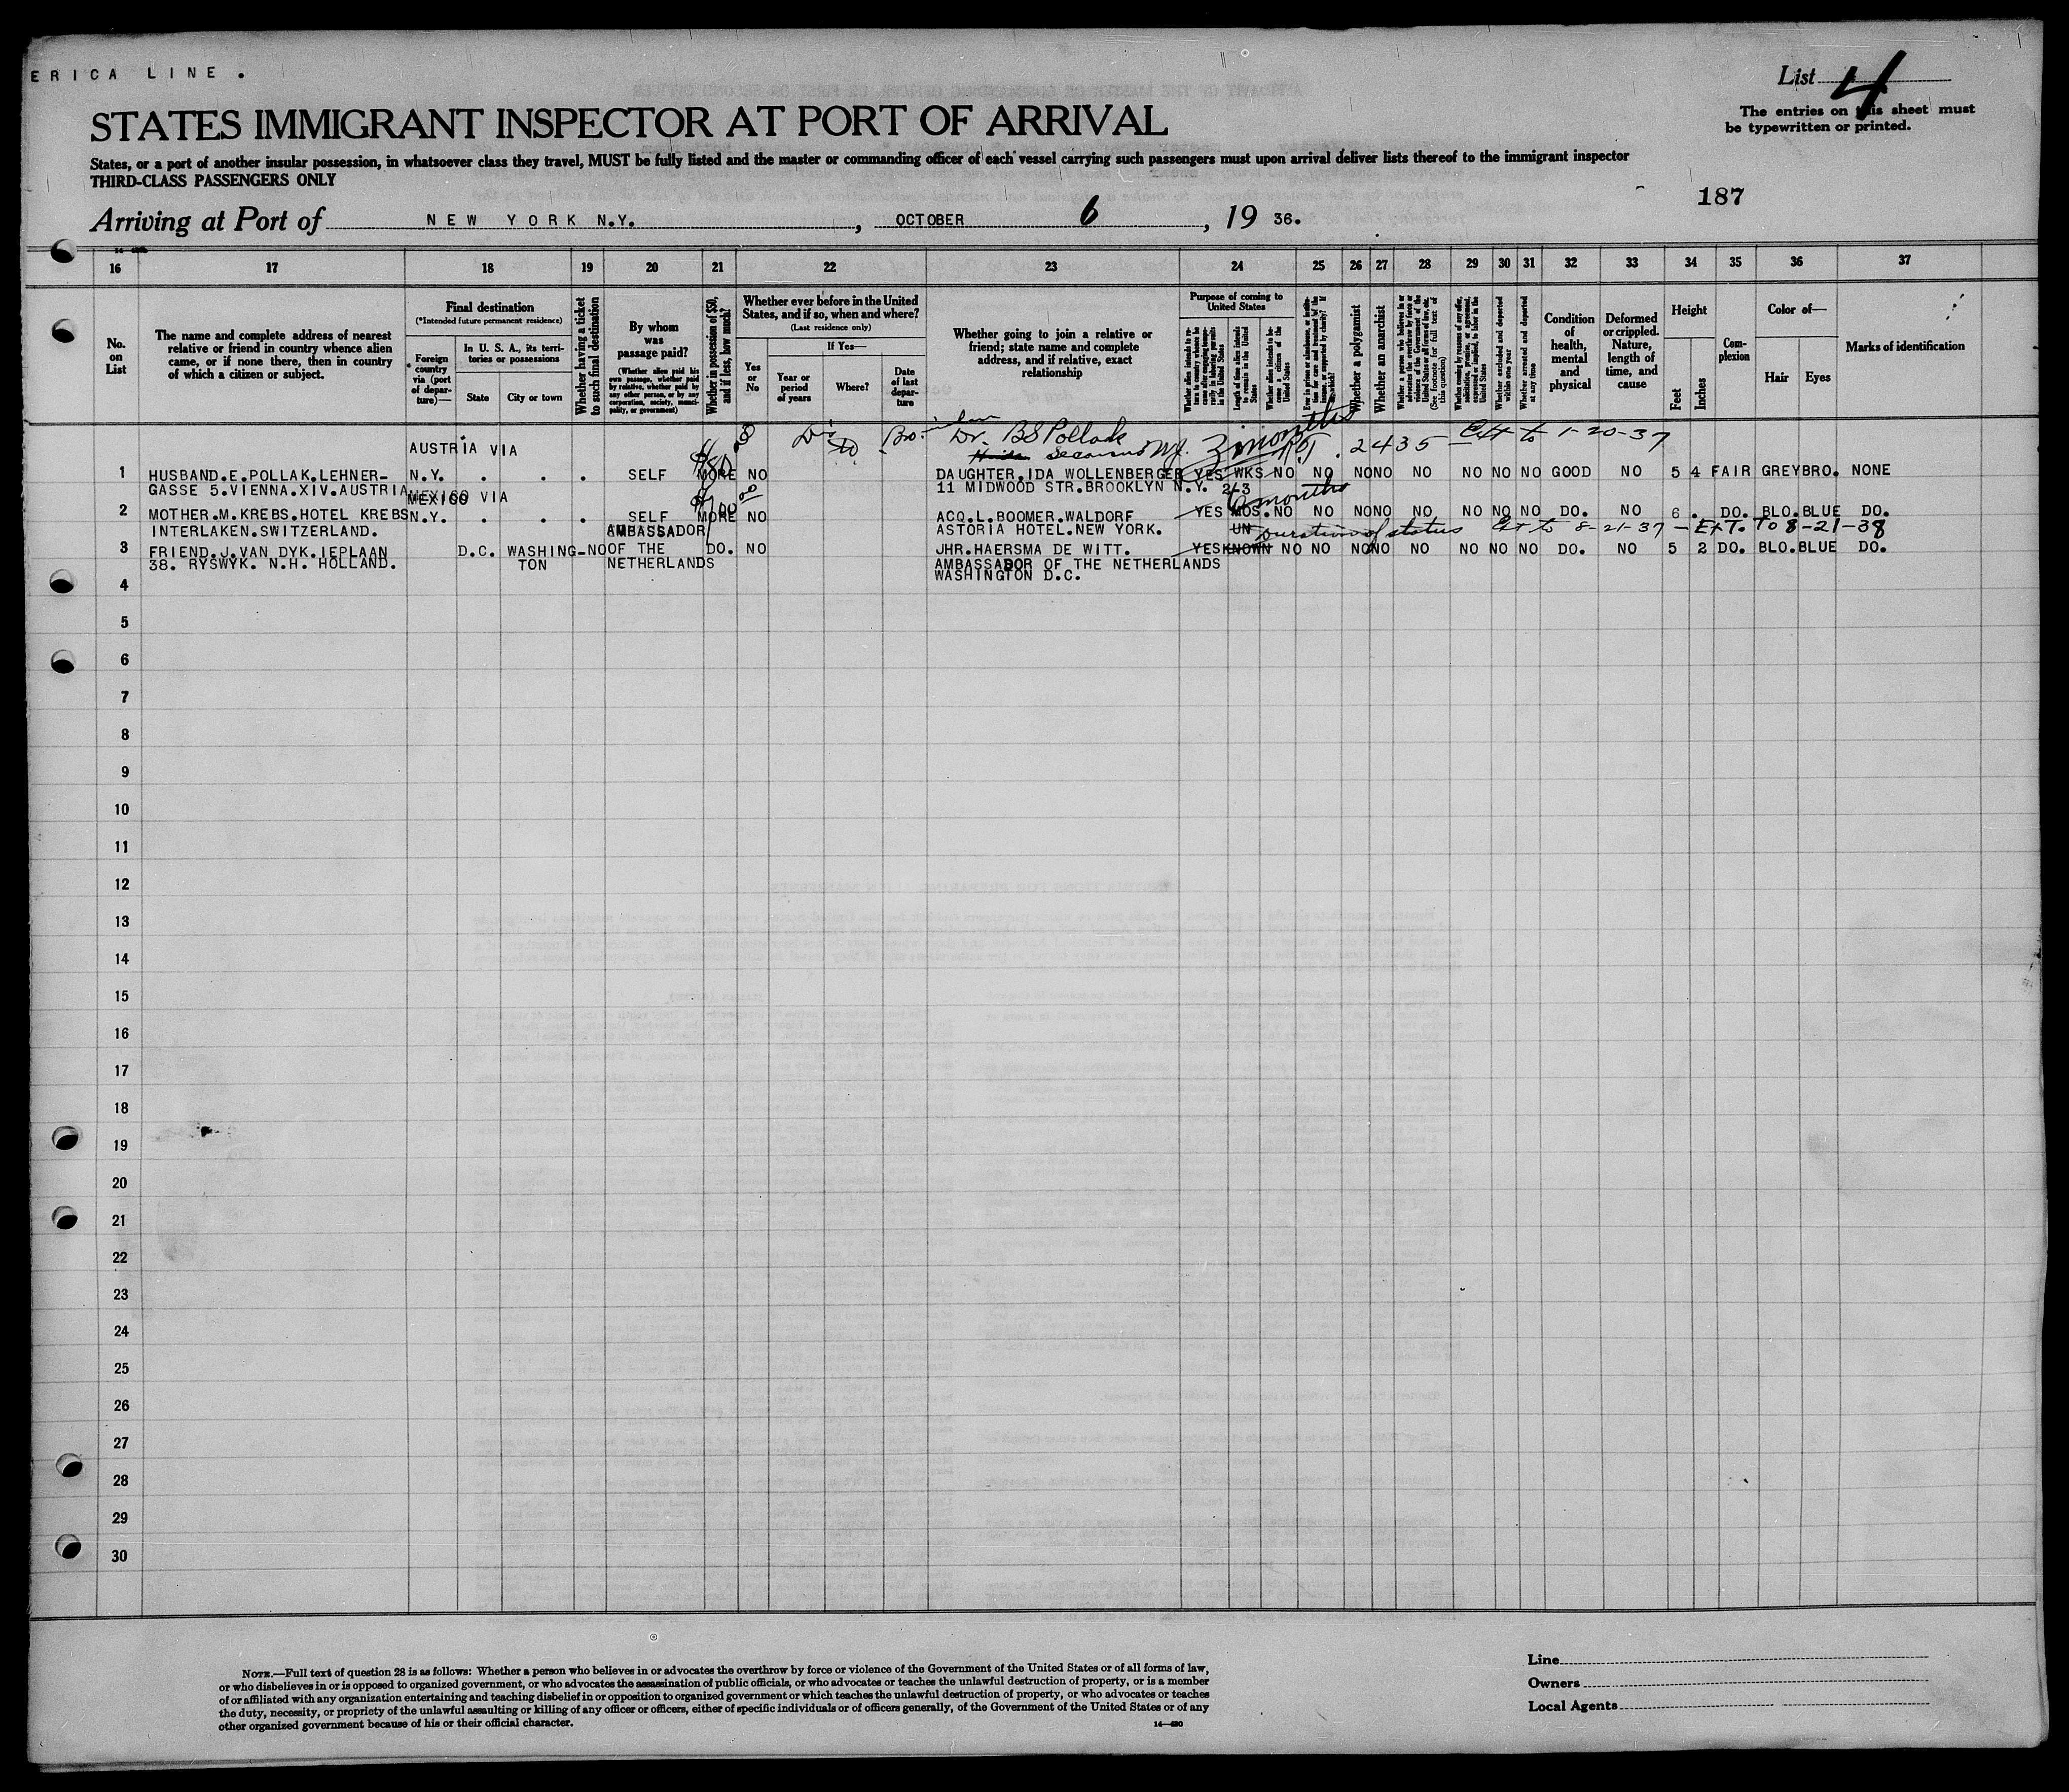 ERICA LINE .
List 4
The entries on this sheet must
be typewritten or printed.
STATES IMMIGRANT INSPECTOR AT PORT OF ARRIVAL
States, or a port of another insular possession, in whatsoever class they travel, MUST be fully listed and the master or commanding officer of each vessel carrying such passengers must upon arrival deliver lists thereof to the immigrant inspector
THIRD-CLASS PASSENGERS ONLY
187
Arriving at Port of NEW YORK N.Y. , OCTOBER 6 , 19 36.
16 17 18 19 20 21 22 23 24 25 26 27 28 29 30 31 32 33 34 35 36 37
No. on List
The name and complete address of nearest
relative or friend in country whence alien
came, or if none there, then in country
of which a citizen or subject.
Final destination
(*Intended future permanent residence)
* Foreign country via (port of departure)—
In U. S. A., its territories or possessions
State
City or town
Whether having a ticket to such final destination
By whom was passage paid?
(Whether alien paid his own passage, whether paid by relative, whether paid by any other person, or by any corporation, society, municipality, or government)
Whether in possession of $50, and if less, how much?
Whether ever before in the United
States, and if so, when and where?
(Last residence only)
Yes or No
If Yes—
Year or period of years
Where?
Date of last departure
Whether going to join a relative or
friend; state name and complete
address, and if relative, exact
relationship
Purpose of coming to United States
Whether alien intends to return to country whence he came after engaging temporarily in laboring pursuits in the United States
Length of time alien intends to remain in the United States
Whether alien intends to become a citizen of the United States
Whether a polygamist
Whether an anarchist
(See footnote for full text of this question)
Whether excluded and deported within one year
Whether arrested and deported at any time
Condition of health, mental and physical
Deformed or crippled. Nature, length of time, and cause
Height
Feet
Inches
Complexion
Color of—
Hair
Eyes
Marks of identification
in law
Dr. BS Pollack
3 months
2435 Ext to 1-20-37
AUSTRIA VIA
Secaucus NJ.
1 HUSBAND.E.POLLAK.LEHNER- N.Y. . . . SELF MORE NO DAUGHTER.IDA WOLLENBERGER YES WKS NO NO NO NO NO NO NO NO GOOD NO 5 4 FAIR GREY BRO. NONE
GASSE 5.VIENNA.XIV.AUSTRIA MEXICO VIA 11 MIDWOOD STR.BROOKLYN N.Y. 2/3
6 months
2 MOTHER.M.KREBS.HOTEL KREBS N.Y. . . . SELF MORE NO ACQ.L.BOOMER.WALDORF YES MOS. NO NO NO NO NO NO NO NO DO. NO 6 . DO. BLO. BLUE DO.
INTERLAKEN.SWITZERLAND. AMBASSADOR ASTORIA HOTEL.NEW YORK. UN Duration of status Ext to 8-21-37 - EXT. TO 8-21-38
3 FRIEND.J.VAN DYK.IEPLAAN D.C. WASHING- NO OF THE DO. NO JHR.HAERSMA DE WITT. YES KNOWN NO NO NO NO NO NO NO NO DO. NO 5 2 DO. BLO. BLUE DO.
38. RYSWYK. N.H. HOLLAND. TON NETHERLANDS AMBASSADOR OF THE NETHERLANDS
WASHINGTON D.C.
4
5
6
7
8
9
10
11
12
13
14
15
16
17
18
19
20
21
22
23
24
25
26
27
28
29
30
NOTE.—Full text of question 28 is as follows: Whether a person who believes in or advocates the overthrow by force or violence of the Government of the United States or of all forms of law,
or who disbelieves in or is opposed to organized government, or who advocates the assassination of public officials, or who advocates or teaches the unlawful destruction of property, or is a member
of or affiliated with any organization entertaining and teaching disbelief in or opposition to organized government or which teaches the unlawful destruction of property, or who advocates or teaches
the duty, necessity, or propriety of the unlawful assaulting or killing of any officer or officers, either of specific individuals or of officers generally, of the Government of the United States or of any
other organized government because of his or their official character.
14—430
Line
Owners
Local Agents